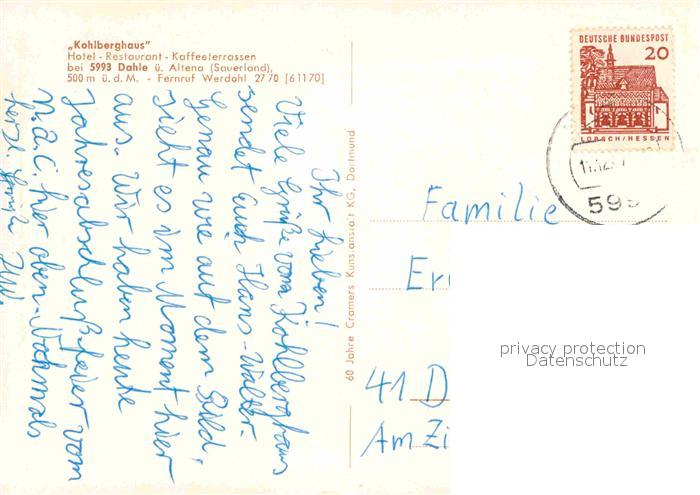 „Kohlberghaus"
Hotel - Restaurant - Kaffeeterrassen
bei 5993 Dahle ü. Altena (Sauerland),
500 m ü. d. M. - Fernruf Werdohl 27 70 [61170]
Ihr Lieben!
Viele Grüße vom Kohlberghaus
sendet euch Hans-Walter.
Genau wie auf dem Bild,
sieht es im Moment hier
aus. Wir haben heute
Jahresabschlußfeier vom
n.a.c. hier oben. Nochmals
herzl. Grüße
60 Jahre Cramers Kunstanstalt KG, Dortmund
DEUTSCHE BUNDESPOST
20
LORSCH/HESSEN
599
Familie
Er
41 D
Am Zi
privacy protection
Datenschutz